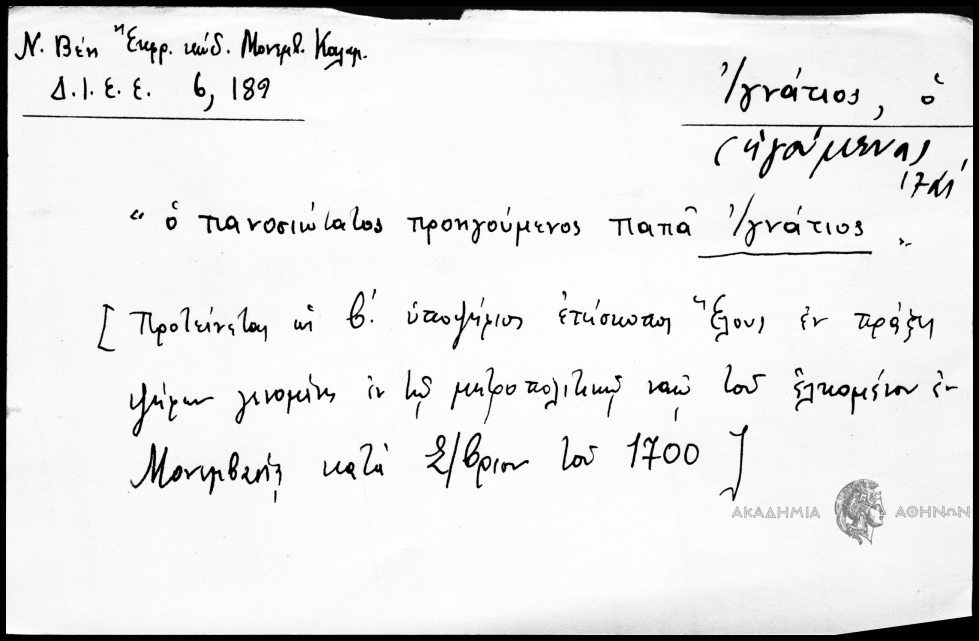 Ν. Βέη Ἔκφρ. κώδ. Μονεμβ. Καλαμ.
Δ.Ι.Ε.Ε. 6, 189
Ἰγνάτιος, ὁ
(ἡγούμενος
"ὁ πανοσιώτατος προηγούμενος παπᾶ Ἰγνάτιος"
[Προτείνεται ὡς β΄. ὑποψήφιος ἐπίσκοπος Ἕλους ἐν πράξει
ψήφων γενομένῃ ἐν τῷ μητροπολιτικῷ ναῷ τοῦ ἑλκομένου ἐν
Μονεμβασίᾳ κατὰ Σ/βριον τοῦ 1700]
ΑΚΑΔΗΜΙΑ ΑΘΗΝΩΝ